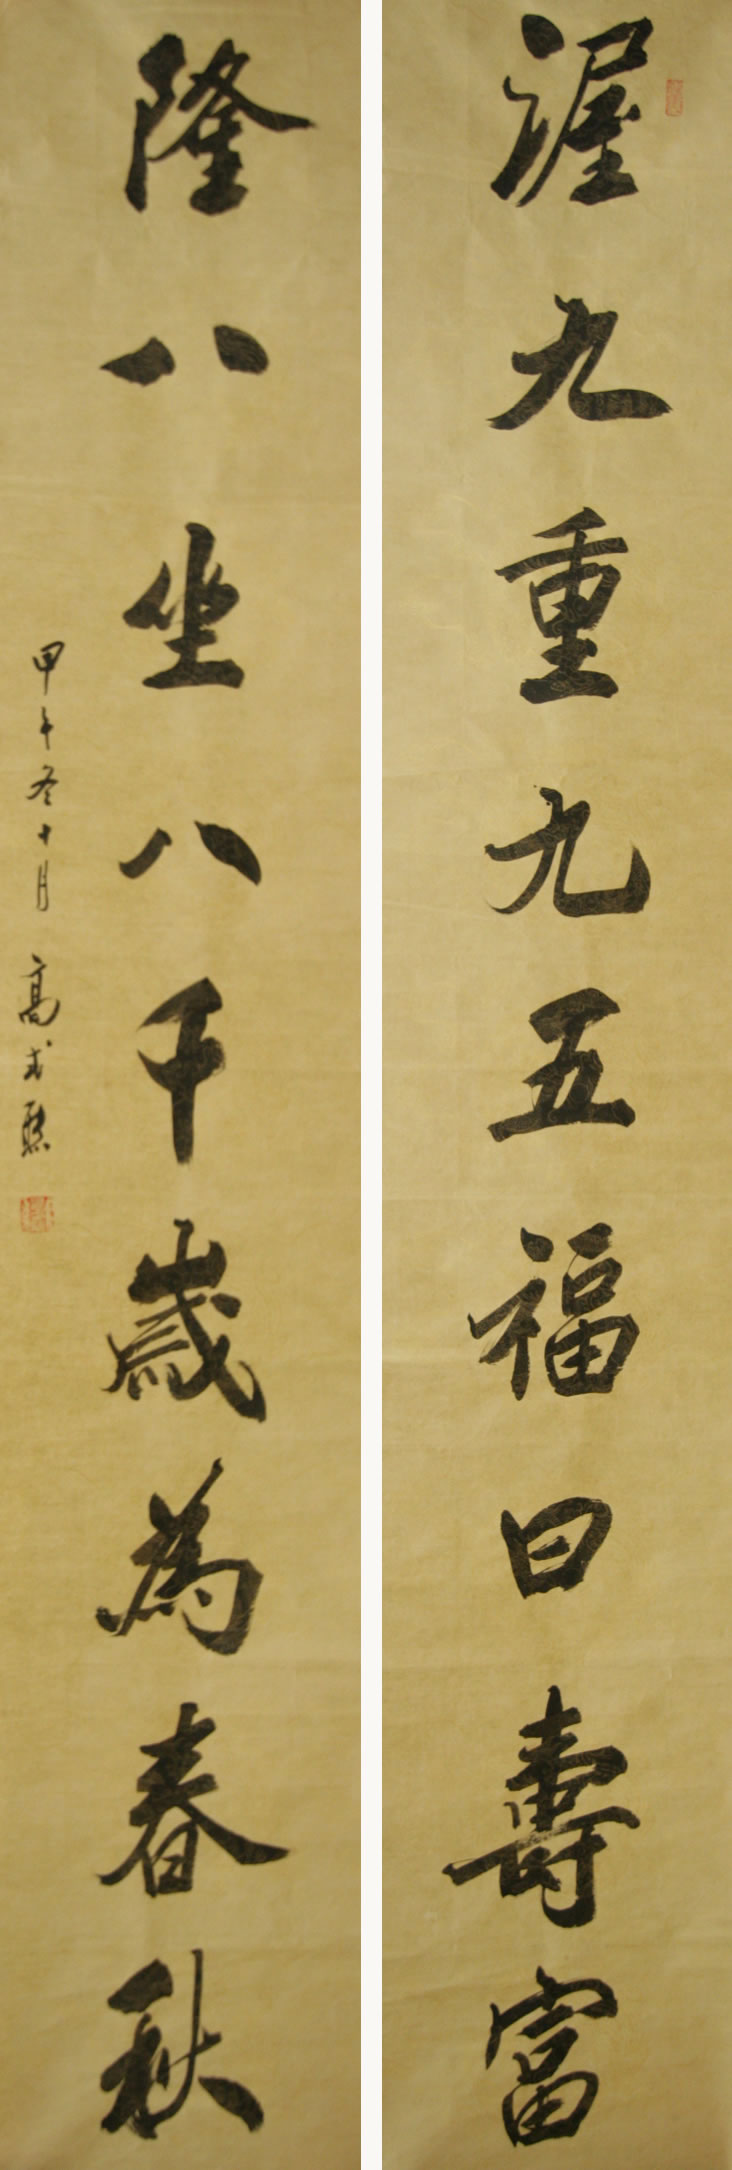 渥九重九五福曰壽富
隆八坐八千歲為春秋
甲午冬十月
高式熊